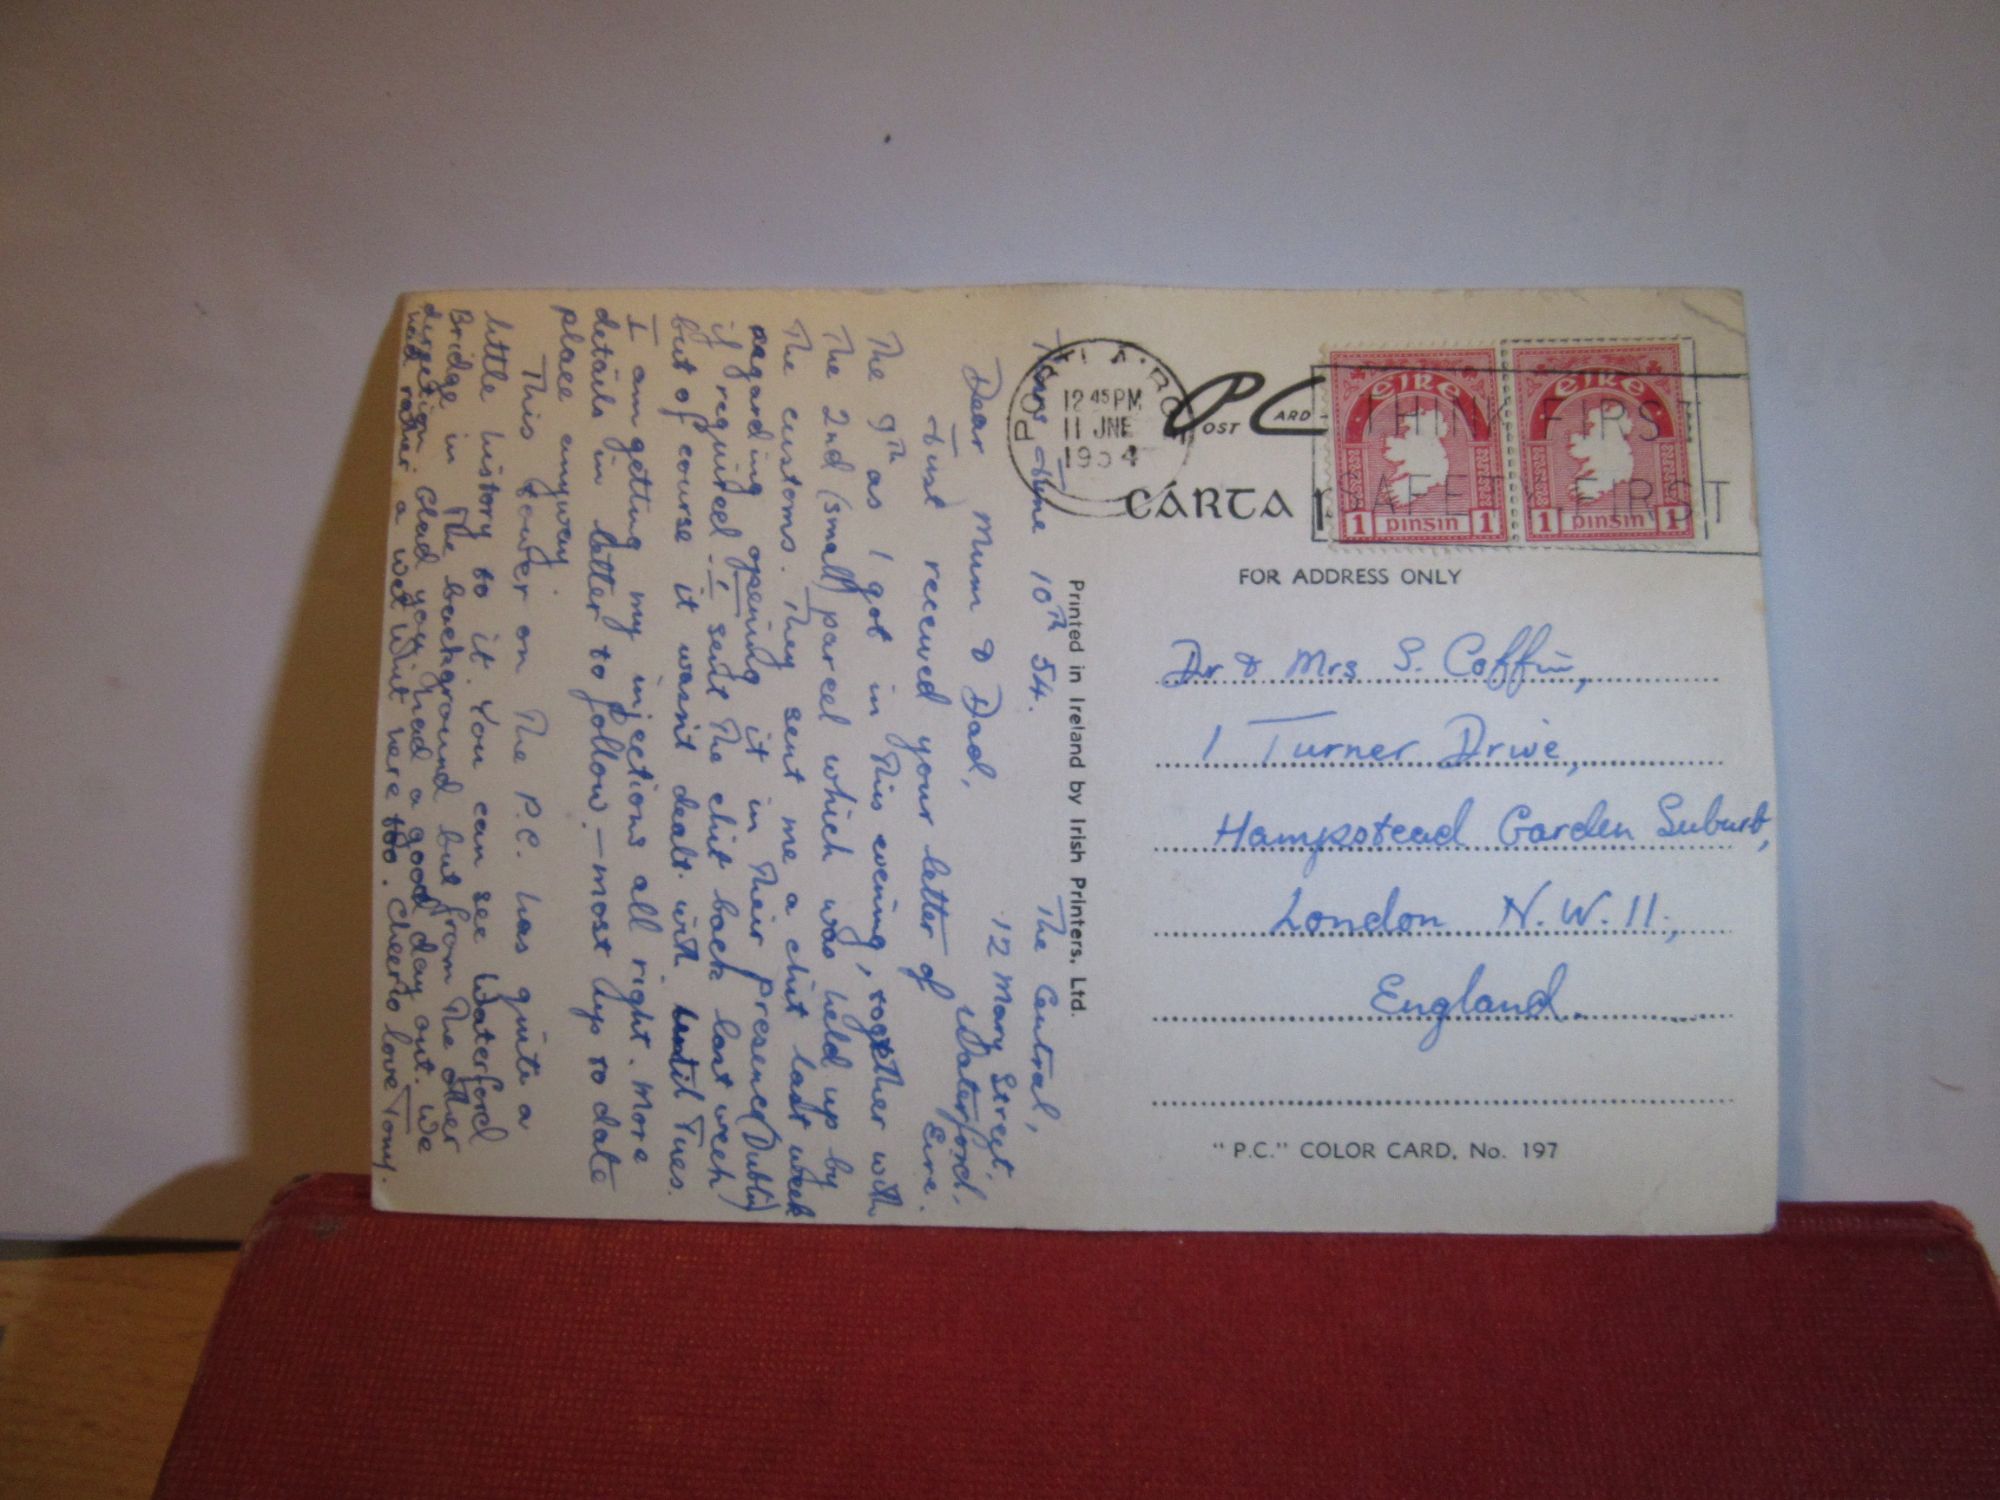 The Central,
12 Mary Street,
Waterford,
Eire.
Thurs June 10th 54.
Dear Mum & Dad,
Just received your letter of
The 9th as I got in This evening, together with
The 2nd (small) parcel which was held up by
The customs. They sent me a chit last week
regarding opening it in Their presence (Dublin)
if required – I sent The chit back last week
but of course it wasn't dealt with until Tues.
I am getting my injections all right. More
details in letter to follow. – most up to date
place anyway.
This tower on The P.C. has quite a
little history to it. You can see Waterford
Bridge in The background but from The other
direction. Glad you had a good day out. We
had rather a wet Whit here too. Cheerio love Tony.
Printed in Ireland by Irish Printers, Ltd.
PORT LÁIRGE
12 45 PM
11 JNE
1954
POST CARD
CÁRTA
THINK FIRST
SAFETY FIRST
éire
1 pinsin 1
éire
1 pinsin 1
FOR ADDRESS ONLY
Dr & Mrs S. Coffin,
1 Turner Drive,
Hampstead Garden Suburb,
London N.W.11,
England.
"P.C." COLOR CARD, No. 197